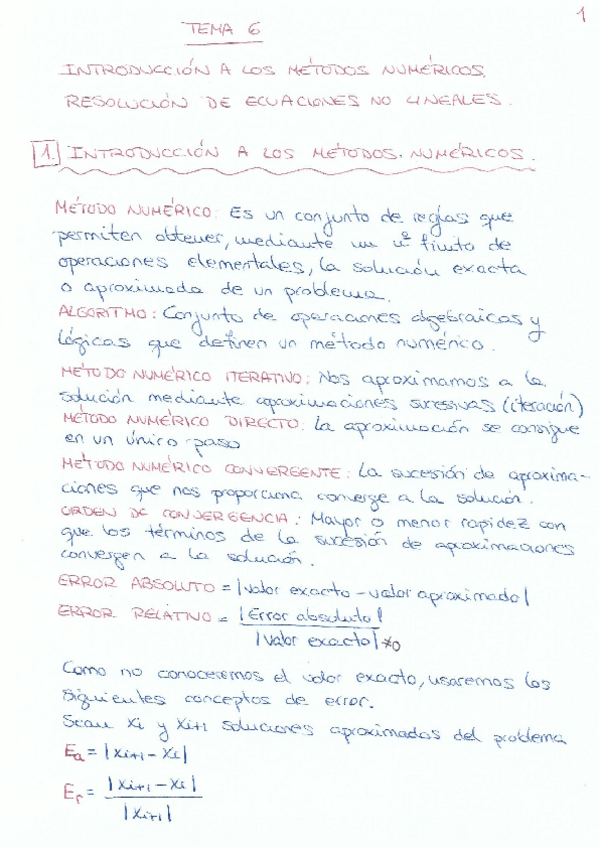 1
TEMA 6
INTRODUCCIÓN A LOS MÉTODOS NUMÉRICOS.
RESOLUCIÓN DE ECUACIONES NO LINEALES.
1. INTRODUCCIÓN A LOS MÉTODOS NUMÉRICOS.
MÉTODO NUMÉRICO: Es un conjunto de reglas que
permiten obtener, mediante un nº finito de
operaciones elementales, la solución exacta
o aproximada de un problema.
ALGORITMO: Conjunto de operaciones algebraicas y
lógicas que definen un método numérico.
MÉTODO NUMÉRICO ITERATIVO: Nos aproximamos a la
solución mediante aproximaciones sucesivas (iteración)
MÉTODO NUMÉRICO DIRECTO: La aproximación se consigue
en un único paso
MÉTODO NUMÉRICO CONVERGENTE: La sucesión de aproxima-
ciones que nos proporciona converge a la solución.
ORDEN DE CONVERGENCIA: Mayor o menor rapidez con
que los términos de la sucesión de aproximaciones
convergen a la solución.
ERROR ABSOLUTO = |valor exacto - valor aproximado|
ERROR RELATIVO = |Error absoluto|
|valor exacto| ≠0
Como no conoceremos el valor exacto, usaremos los
siguientes conceptos de error.
Sean xi y xi+1 soluciones aproximadas del problema
Ea = |xi+1 - xi|
Er = |xi+1 - xi|
|xi+1|